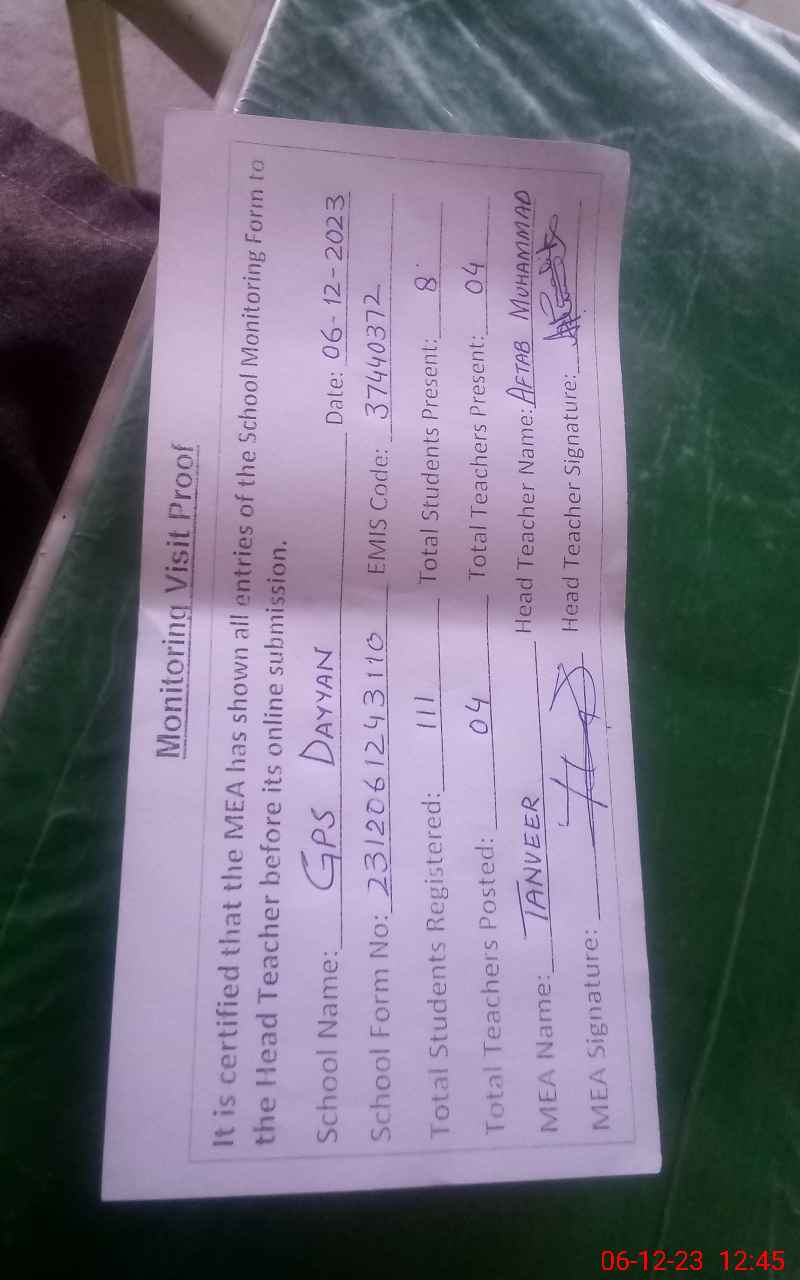 Monitoring Visit Proof
It is certified that the MEA has shown all entries of the School Monitoring Form to
the Head Teacher before its online submission.
School Name: GPS DAYYAN Date: 06-12-2023
School Form No: 2312061243110 EMIS Code: 37440372
Total Students Registered: 111 Total Students Present: 8
Total Teachers Posted: 04 Total Teachers Present: 04
MEA Name: TANVEER Head Teacher Name: AFTAB MUHAMMAD
MEA Signature: Head Teacher Signature:
06-12-23 12:45